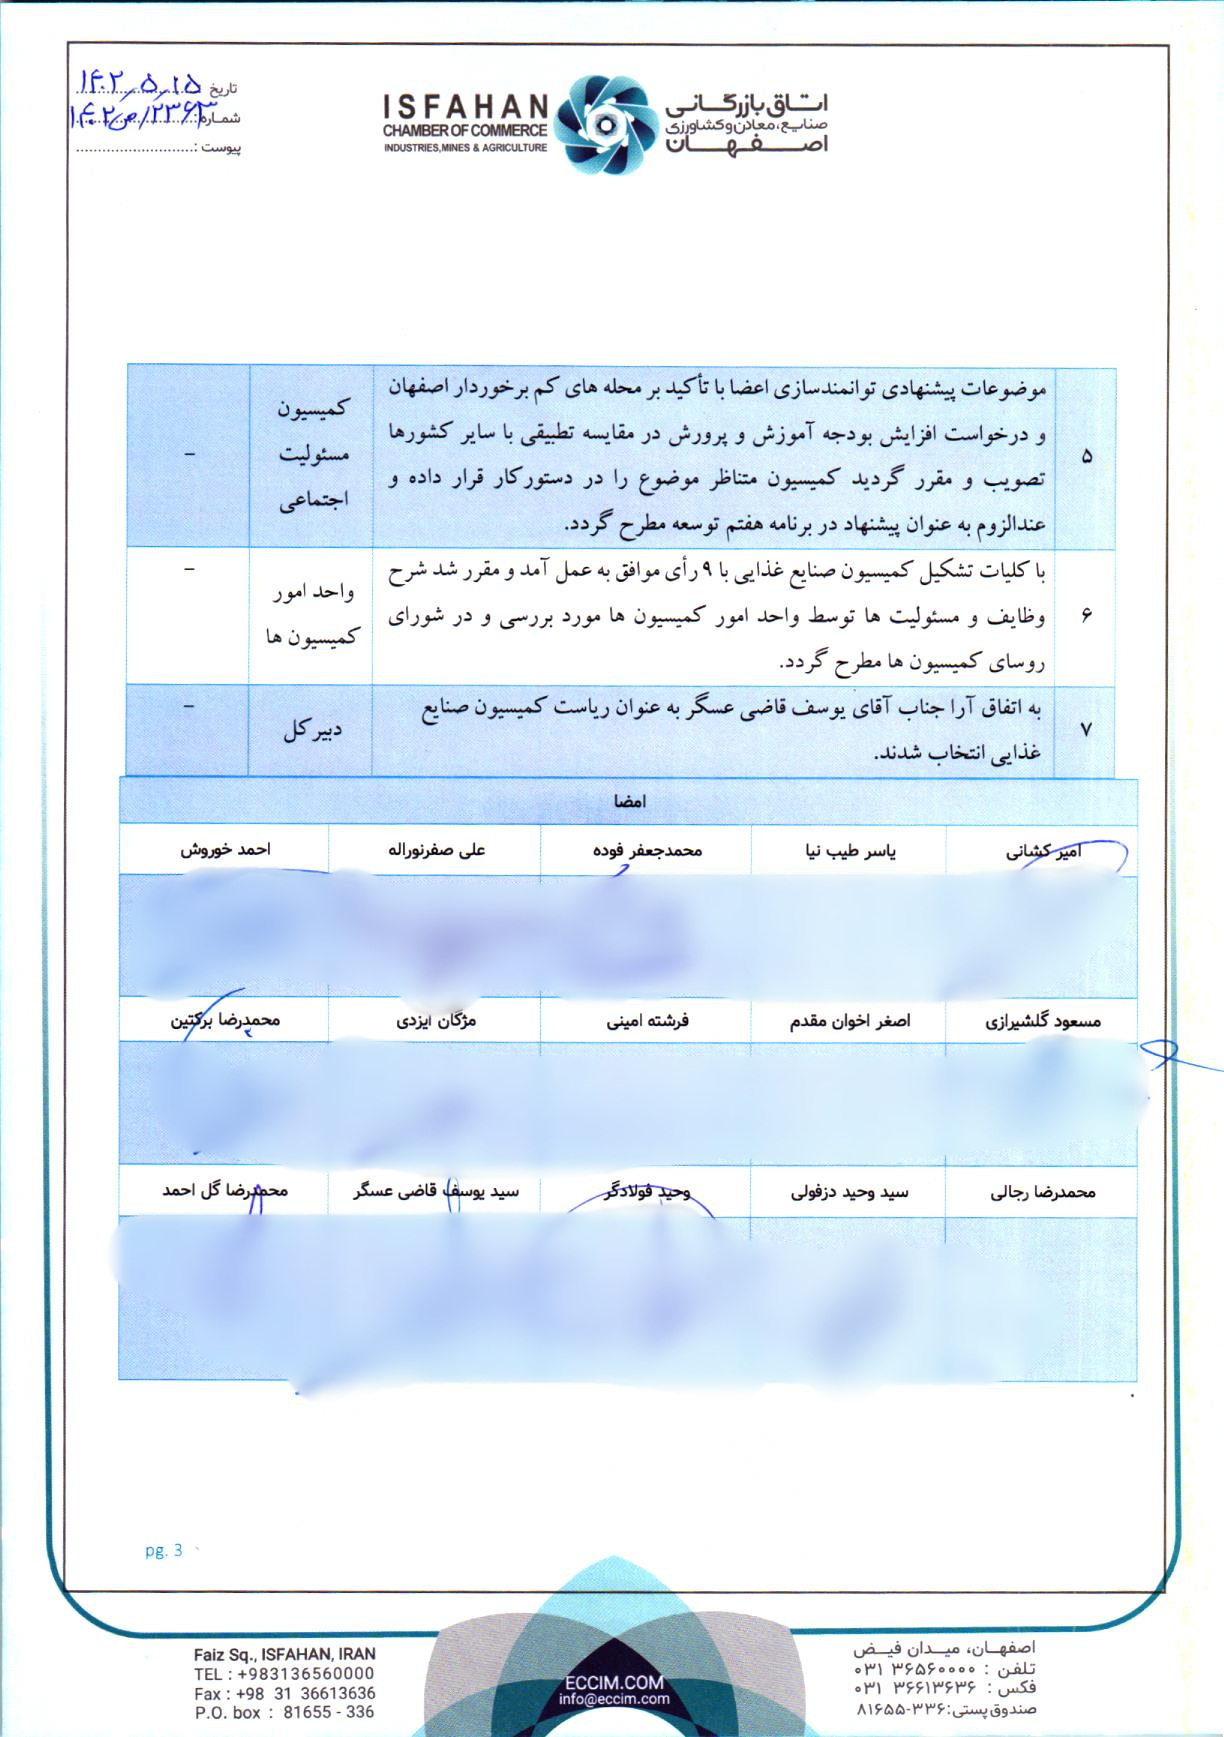 تاریخ ۱۴۰۲/۵/۱۵
شماره ۲۳۶۳/ص/۱۴۰۲
پیوست :
ISFAHAN
CHAMBER OF COMMERCE
INDUSTRIES, MINES & AGRICULTURE
اتاق بازرگانی
صنایع، معادن و کشاورزی
اصفهان
۵
موضوعات پیشنهادی توانمندسازی اعضا با تأکید بر محله های کم برخوردار اصفهان
و درخواست افزایش بودجه آموزش و پرورش در مقایسه تطبیقی با سایر کشورها
تصویب و مقرر گردید کمیسیون متناظر موضوع را در دستورکار قرار داده و
عندالزوم به عنوان پیشنهاد در برنامه هفتم توسعه مطرح گردد.
کمیسیون
مسئولیت
اجتماعی
–
۶
با کلیات تشکیل کمیسیون صنایع غذایی با ۹ رأی موافق به عمل آمد و مقرر شد شرح
وظایف و مسئولیت ها توسط واحد امور کمیسیون ها مورد بررسی و در شورای
روسای کمیسیون ها مطرح گردد.
واحد امور
کمیسیون ها
–
۷
به اتفاق آرا جناب آقای یوسف قاضی عسگر به عنوان ریاست کمیسیون صنایع
غذایی انتخاب شدند.
دبیر کل
–
امضا
امیر کشانی یاسر طیب نیا محمدجعفر فوده علی صفرنوراله احمد خوروش
مسعود گلشیرازی اصغر اخوان مقدم فرشته امینی مژگان ایزدی محمدرضا برکتین
محمدرضا رجالی سید وحید دزفولی وحید فولادگر سید یوسف قاضی عسگر محمدرضا گل احمد
pg. 3
Faiz Sq., ISFAHAN, IRAN
TEL : +983136560000
Fax : +98 31 36613636
P.O. box : 81655 - 336
ECCIM.COM
info@eccim.com
اصفهـان، میـدان فیـض
تلفن : ۳۶۵۶۰۰۰۰ ۰۳۱
فکس : ۳۶۶۱۳۶۳۶ ۰۳۱
صندوق پستی: ۳۳۶-۸۱۶۵۵